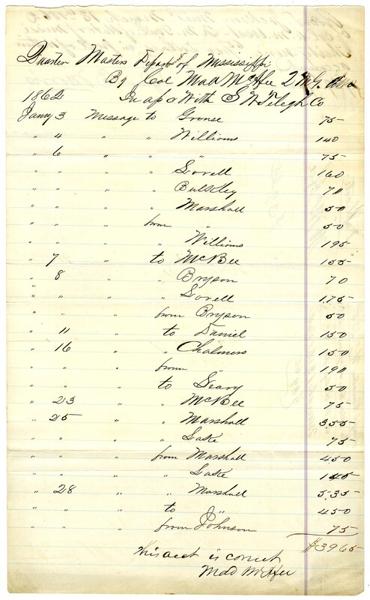 Quarter Masters Depmt of Mississippi
By Col Mad McAfee 2 M G
1862 In ac With S W Telegh Co
Jany 3 Message to 75
" 4 " " Williams 140
" 6 " " " 75
" " " " Lovell 160
" " " " 70
" " " " Marshall 50
" " " from " 50
" " " " Williams 195
" 7 " to McBee 155
" 8 " " Bryson 70
" " " " Lovell 175
" " " from Bryson 50
" 11 " to Daniel 150
" 16 " " Chalmers 150
" " " from " 190
" " " to Geary 50
" 23 " " McBee 75
" 25 " " Marshall 355
" " " " Lake 75
" " " from Marshall 450
" " " " Lake 145
" 28 " " Marshall 535
" " " to " 450
" " " from Johnson 75
$3965
This acct is correct
Mad McAfee